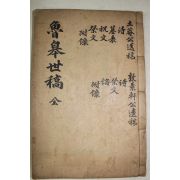 土菴公遺稿
詩
墓表
祝文
祭文
附錄
敦素軒公遺稿
詩
祭文
附錄
魯皐世稿 全